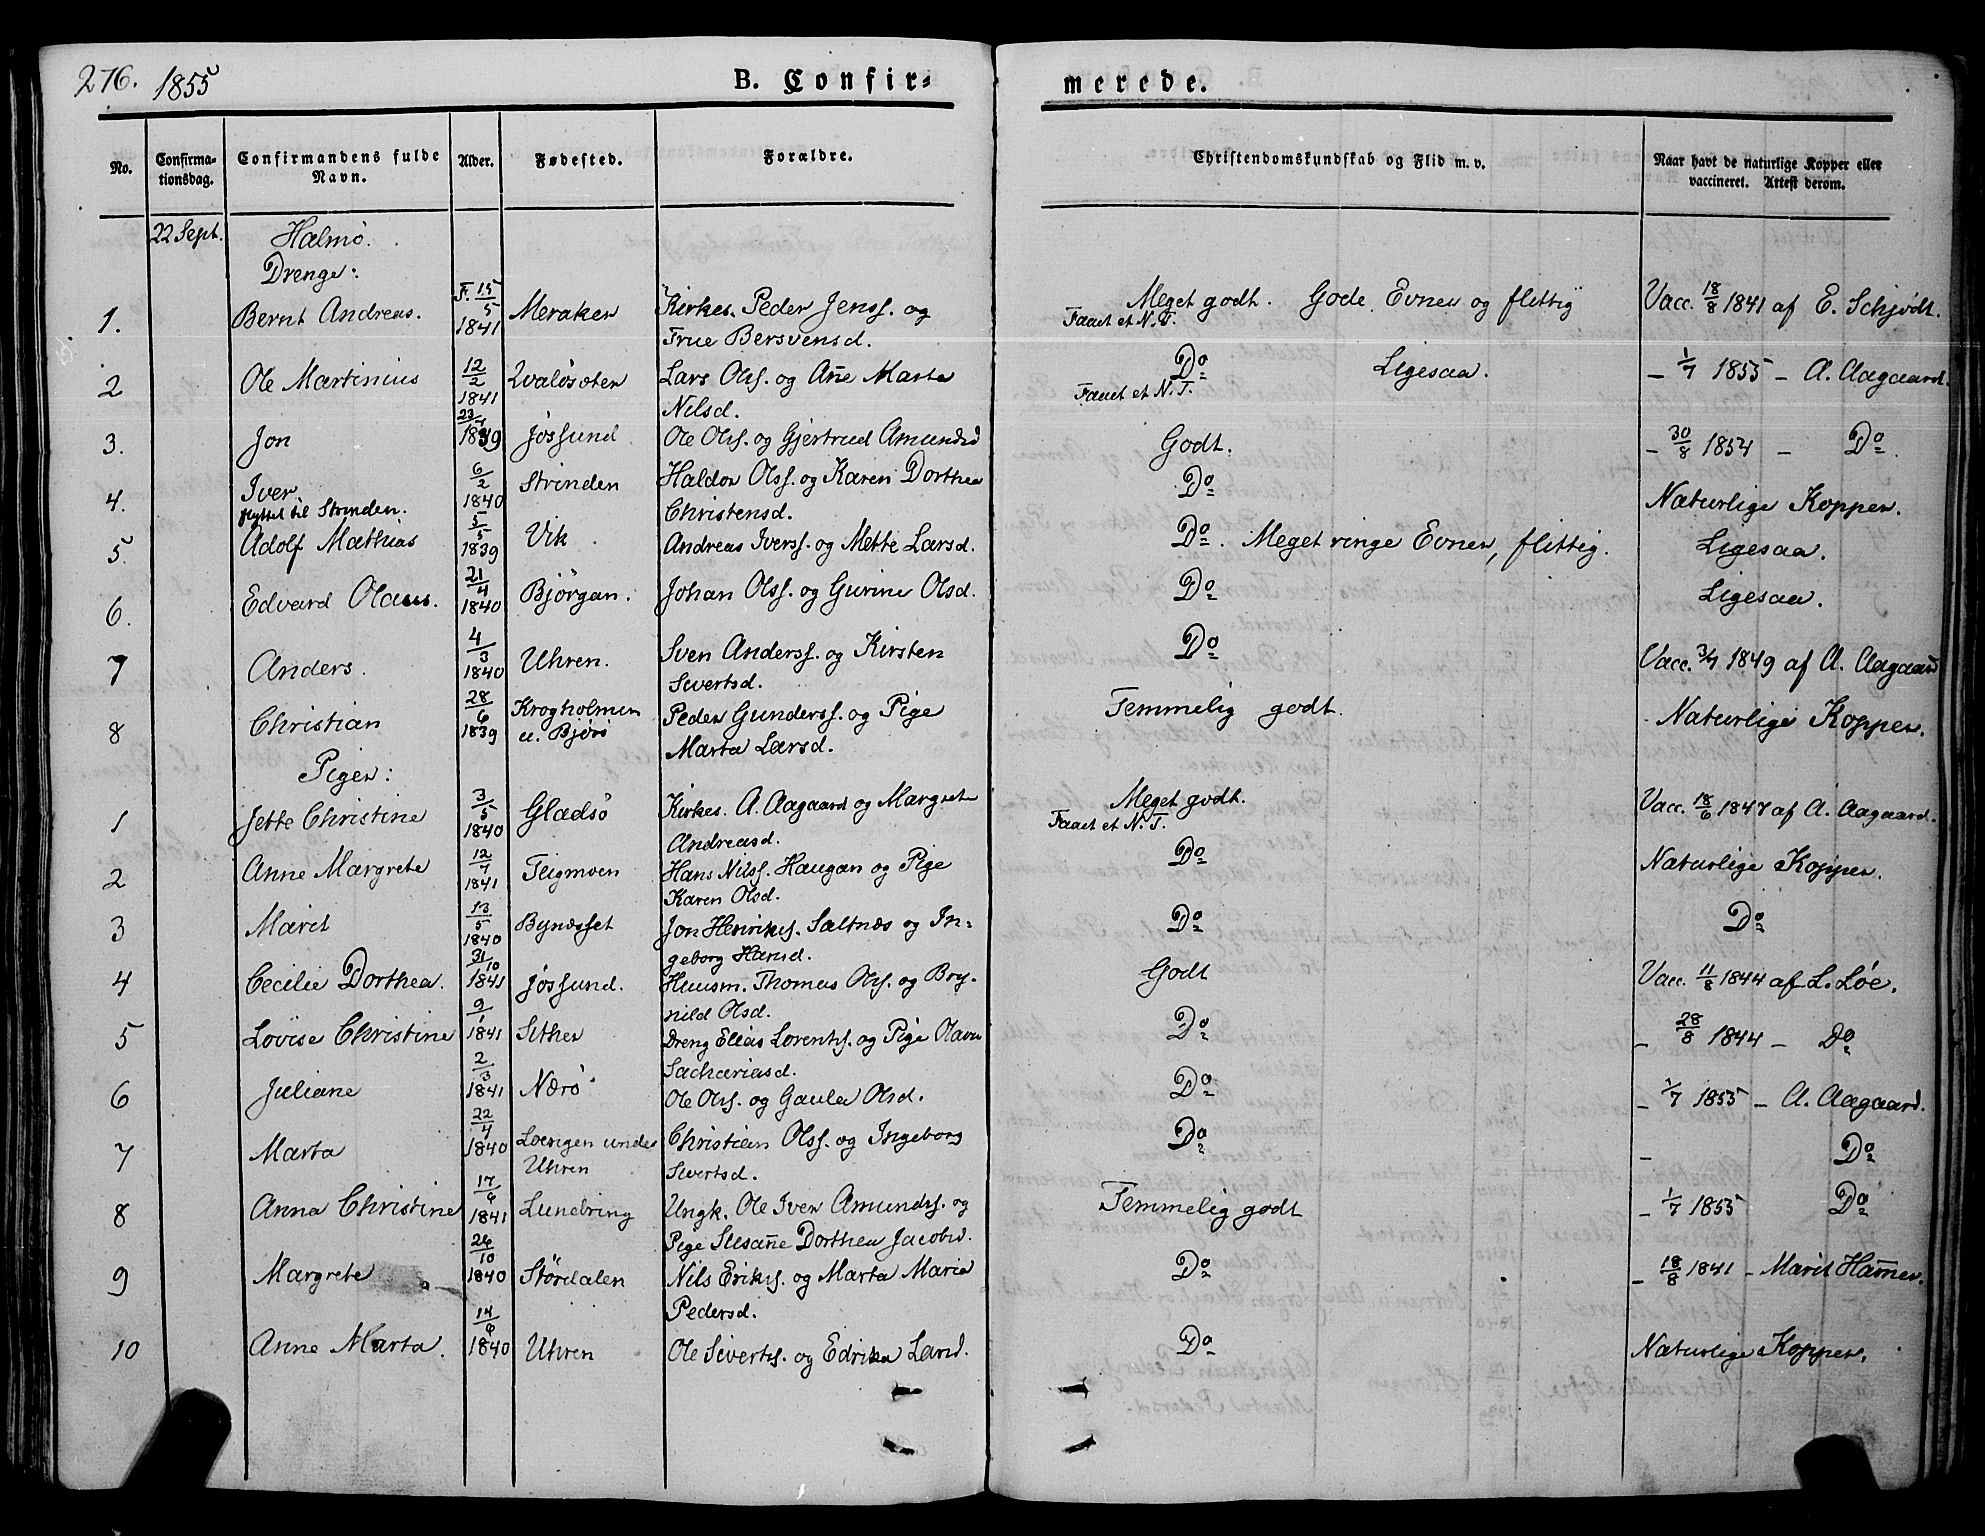 276. 1855 B. Confirmerede.
No. Confirmationsdag. Confirmandens fulde Navn. Alder. Fødested. Forældre. Christendomskundskab og Flid m.v. Naar havt de naturlige Kopper eller vaccineret. Attest derom.
22 Sept. Halmø.
Drenge:
1. Bernt Andreas. F. 15/5 1841 Meraker Kirkes. Peder Jenss. og Frue Bersvensd. Meget godt. Faaet et N.T. Gode Evner og flittig Vacc. 18/8 1841 af E. Schjødt.
2 Ole Martinius 12/2 1841 Lars Olss. og Ane Marta Nilsd. Do Faaet et N.T. Ligesaa. - 1/7 1855 - A. Aagaard.
3. Jon 1839 Jøssund Ole Olss. og Gjertrud Amundsd Godt. - 30/8 1854 - Do.
4. Iver flyttet til Strinden. 6/2 1840 Strinden Haldor Olss. og Karen Dorthea Christensd. Do Naturlige Kopper.
5. Adolf Mathias 5/5 1839 Vik Andreas Iverss. og Mette Larsd. Do. Meget ringe Evner, flittig. Ligesaa.
6. Edvard Olaus. 21/4 1840 Bjørgan. Johan Olss. og Gurine Olsd. Do Ligesaa.
7 Anders. 4/3 1840 Uhren. Sven Anderss. og Kirsten Sivertsd. Do Vacc. 3/7 1849 af A. Aagaard
8 Christian 28/6 1839 Krogholmen u. Bjørø Peder Gunderss. og Pige Marta Larsd. Temmelig godt. Naturlige Kopper.
Piger:
1 Jette Christine 3/5 1840 Gladsø Kirkes. A. Aagaard og Margrete Andreasd. Meget godt. Faaet et N.T. Vacc. 18/6 1847 af A. Aagaard.
2 Anne Margrete 12/4 1841 Teigmoen Hans Nilss. Haugan og Pige Karen Olsd. Do Naturlige Kopper.
3 Marit 13/5 1840 Bynæsset Jon Henrikss. Saltnæs og Ingeborg Hansd. Do Do
4 Cecilie Dorthea. 31/10 1841 Jøssund. Huusm. Thomas Olss. og Brynild Olsd. Godt Vacc. 11/8 1844 af L. Løe.
5 Lovise Christine 9/1 1841 Sether Dreng Elias Lorents. og Pige Olava Sachariasd. Do - 28/8 1844 - Do
6 Juliane 2/3 1841 Nærø Ole Olss. og Gaulea Olsd. Do - 1/7 1855 - A. Aagaard.
7 Marta 22/4 1840 under Uhren Christian Olss. og Ingeborg Sivertsd. Do - Do
8 Anna Christine 17/6 1841 Lundring Ungk. Ole Iver Amundss. og Pige Susane Dorthea Jacobsd. Temmelig godt - 1/7 1855 Do
9 Margrete 26/10 1840 Størdalen Nils Erikss. og Marta Marie Pedersd. Do - 18/8 1841 - Marit Hamer.
10 Anne Marta. 14/6 1840 Uhren Ole Siverts. og Edrika Larsd. Do Naturlige Kopper.